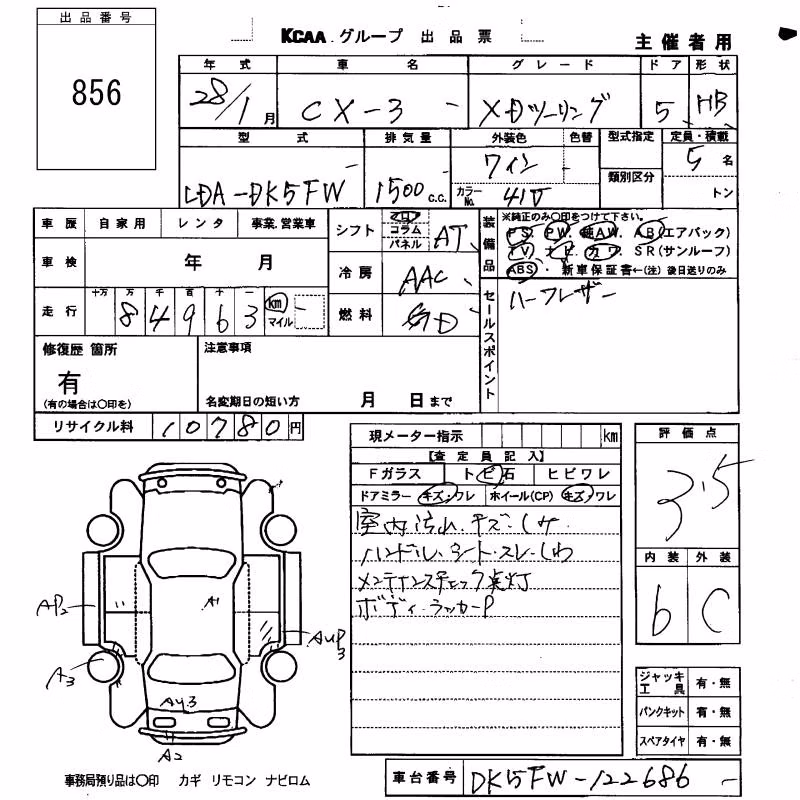 出品番号
856
KCAA グループ 出品票
主催者用
年式 車名 グレード ドア 形状
28/1月 CX-3 XDツーリング 5 HB
型式 排気量 外装色 色替 型式指定 定員・積載
LDA-DK5FW 1500 c.c. ワイン 5名
カラーNo. 41V 類別区分 トン
車歴 自家用 レンタ 事業.営業車
車検 年 月
走行 十万 万 千 百 十 一
84963 km マイル
シフト フロア コラム パネル AT
冷房 AAC
燃料
装備品
※純正のみ〇印をつけて下さい。
PS. PW. 純AW. AB(エアバック)
TV. ナビ. カワ. SR(サンルーフ)
ABS・ 新車保証書←(注) 後日送りのみ
セールスポイント
ハーフレザー
修復歴 箇所
有
(有の場合は〇印を)
注意事項
名変期日の短い方 月 日まで
リサイクル料 10780円
現メーター指示 km
【査定員記入】
Fガラス ト ビ 石 ヒビワレ
ドアミラー キズ.ワレ ホイール(CP) キズ.ワレ
室内汚れ.キズ.シミ
ハンドル.シート.スレ.しわ
メンテナンスチェック点灯
ボディ.ラッカーP
評価点
3.5
内装 外装
b C
ジャッキ工具 有・無
パンクキット 有・無
スペアタイヤ 有・無
AP2
A1
AUP3
A3
AU3
A2
事務局預り品は〇印 カギ リモコン ナビロム
車台番号 DK5FW-122686